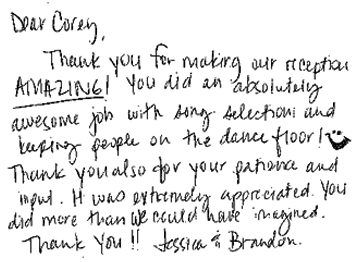 Dear Corey,
Thank you for making our reception
AMAZING! You did an absolutely
awesome job with song selections and
keeping people on the dance floor!
Thank you also for your patience and
input. It was extremely appreciated. You
did more than we could have imagined.
Thank You!! Jessica & Brandon.